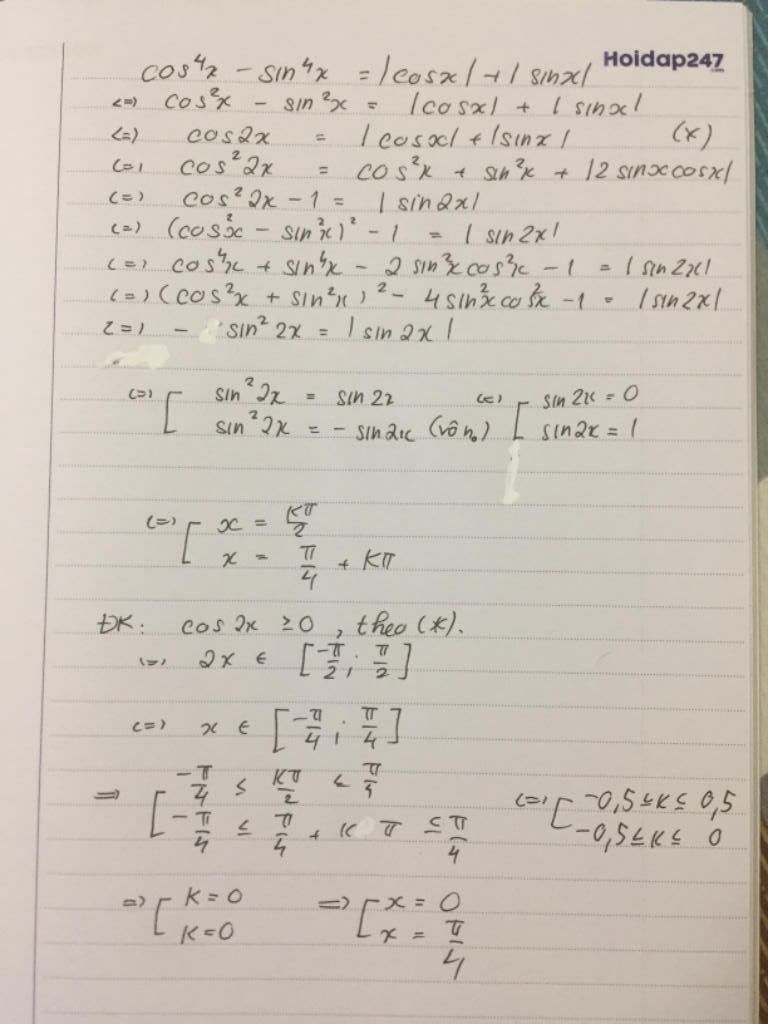 Hoidap247.com
cos⁴x - sin⁴x = |cosx| + |sinx|
<=> cos²x - sin²x = |cosx| + |sinx|
<=> cos2x = |cosx| + |sinx| (*)
<=> cos²2x = cos²x + sin²x + |2sinxcosx|
<=> cos²2x - 1 = |sin2x|
<=> (cos²x - sin²x)² - 1 = |sin2x|
<=> cos⁴x + sin⁴x - 2sin²xcos²x - 1 = |sin2x|
<=> (cos²x + sin²x)² - 4sin²xcos²x - 1 = |sin2x|
<=> - sin²2x = |sin2x|
<=> [ sin²2x = sin2x <=> [ sin2x = 0
sin²2x = - sin2x (vô n₀) sin2x = 1
<=> [ x = kπ/2
x = π/4 + kπ
ĐK: cos2x ≥ 0, theo (*).
<=> 2x ∈ [-π/2; π/2]
<=> x ∈ [-π/4; π/4]
=> [ -π/4 ≤ kπ/2 ≤ π/4 <=> [ -0,5 ≤ k ≤ 0,5
-π/4 ≤ π/4 + kπ ≤ π/4 -0,5 ≤ k ≤ 0
=> [ k = 0 => [ x = 0
k = 0 x = π/4